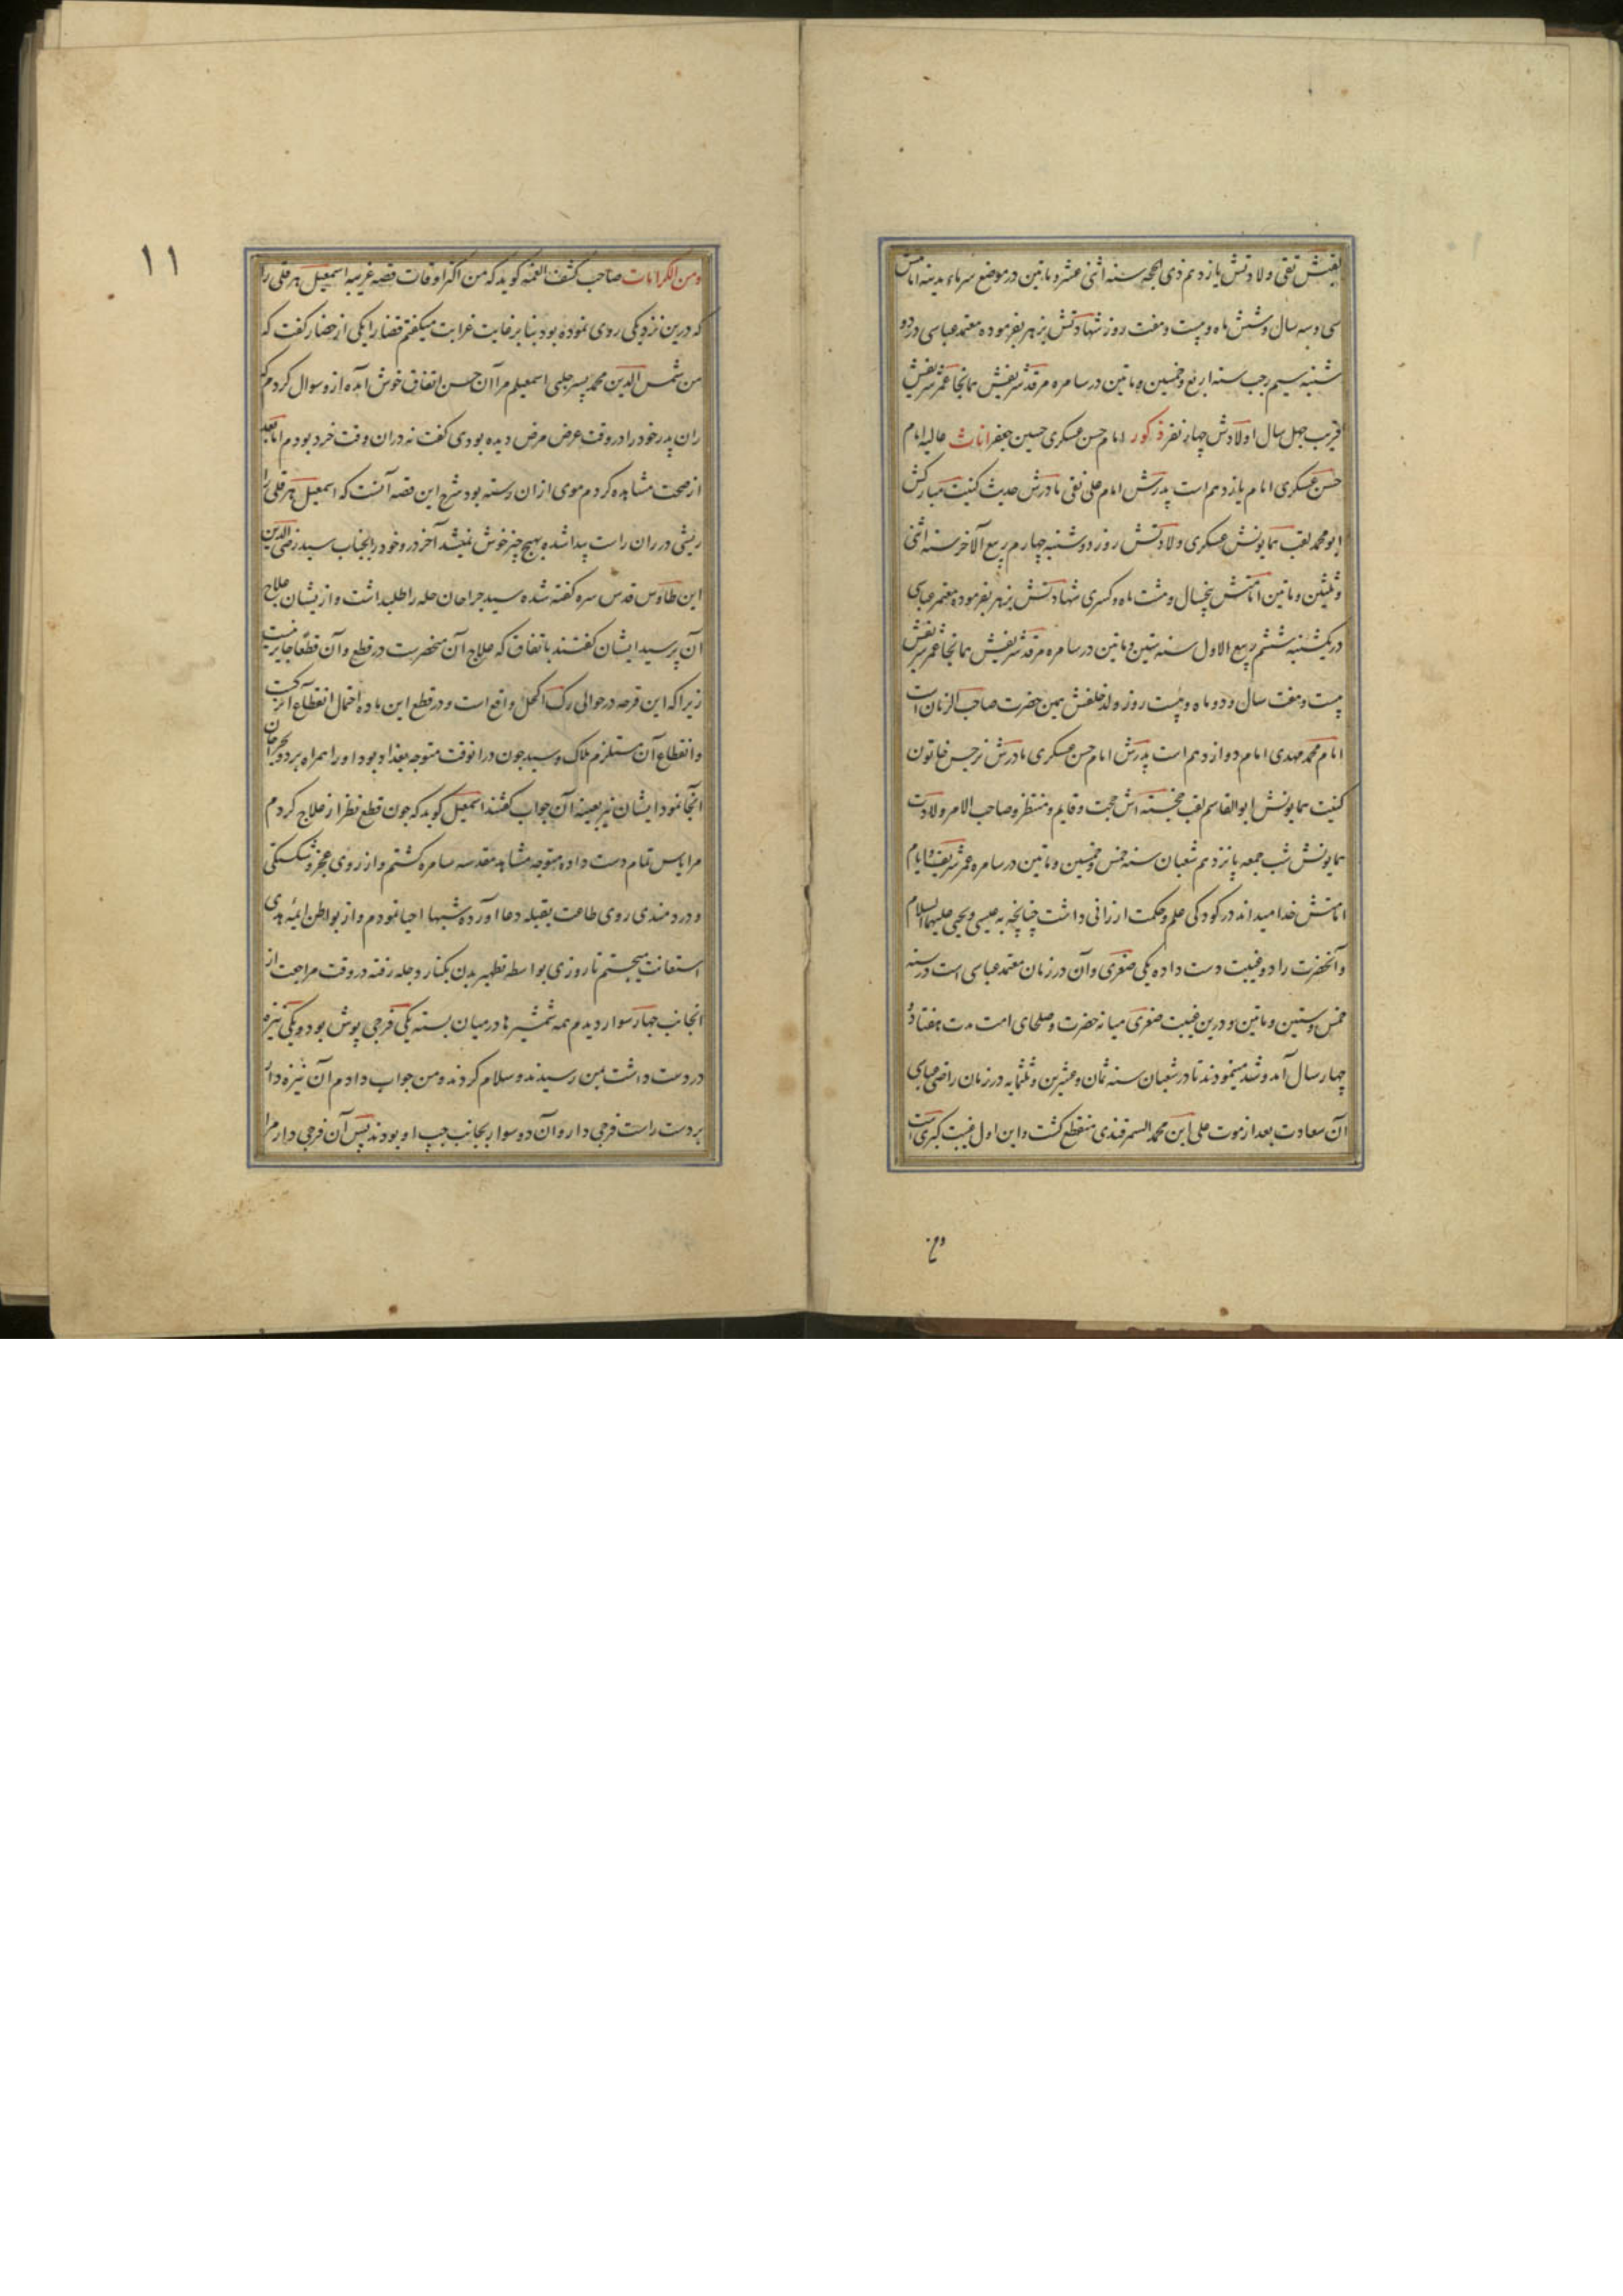 لقبش تقی ولادتش یازدهم ذی الحجه سنه اثنی عشر و ماتین در موضع سرماء مدینه امامتش
سی و سه سال و شش ماه و بیست و هفت روز شهادتش بزهر بفرموده معتمد عباسی در دو
شنبه سیم رجب سنه اربع و خمسین و ماتین در سامره مرقد شریفش همانجا عمر شریفش
قریب چهل سال اولادش چهار نفر ذکور امام حسن عسکری حسین جعفر اناث عالیه امام
حسن عسکری امام یازدهم است پدرش امام علی نقی مادرش حدیث کنیت مبارکش
ابو محمد لقب همایونش عسکری ولادتش روز دوشنبه چهارم ربیع الآخر سنه اثنی
و ثلثین و ماتین امامتش پنجسال و هشت ماه و کسری شهادتش بزهر بفرموده معتمر عباسی
در یکشنبه ششم ربیع الاول سنه ستین و ماتین در سامره مرقد شریفش همانجا عمر شریفش
بیست و هفت سال و دو ماه و بیست روز ولد خلفش همین حضرت صاحب الزمان است
امام محمد مهدی امام دوازدهم است پدرش امام حسن عسکری مادرش نرجس خاتون
کنیت همایونش ابو القاسم لقب خجسته اش حجت و قایم و منتظر و صاحب الامر ولادت
همایونش شب جمعه پانزدهم شعبان سنه خمس و خمسین و ماتین در سامره عمر شریف و ایام
امامتش خدا میداند در کودکی علم و حکمت ارزانی داشت چنانچه به عیسی و یحیی علیهما السلام
و آنحضرت را دو غیبت دست داده یکی صغری و آن در زمان معتمد عباسی است در سنه
خمس و ستین و ماتین و درین غیبت صغری میانه حضرت و صلحای امت مدت هفتاد و
چهار سال آمد و شد مینمودند تا در شعبان سنه ثمان و عشرین و ثلثمایه در زمان راضی عباسی
آن سعادت بعد از موت علی ابن محمد السمرقندی منقطع کشت و این اول غیبت کبری است
ومن
۱۱
ومن الکرامات صاحب کشف الغمه کوید که من اکثر اوقات قصه غریبه اسمعیل هرقلی را
که درین نزدیکی روی نموده بود بنا بر غایت غرابت میکفتم قضا را یکی از حضار کفت که
من شمس الدین محمد پسر اسمعیلم مرا آن حسن اتفاق خوش آمده ازو سوال کردم که
ران پدر خود را در وقت عرض مرض دیده بودی کفت نه دران وقت خرد بودم اما بعد
از صحت مشاهده کردم موی ازان رسته بود شرح این قصه آنست که اسمعیل هرقلی را
ریشی در ران راست پیدا شده بهیچ چیز خوش نمیشد آخر درد خود را بجناب سید رضی الدین
ابن طاوس قدس سره کفته شده سید جراحان حله را طلب داشت و ازیشان علاج
آن پرسید ایشان کفتند باتفاق که علاج آن منحصرست در قطع و آن قطعا جایز نیست
زیرا که این قرحه در حوالی رک اکحل واقع است و در قطع این ماده احتمال انقطاع آن رکست
و انقطاع آن مستلزم هلاک و سید چون درانوقت متوجه بغداد بود او را همراه برد و بجراحان
آنجا نمود ایشان نیز بعینه آن جواب کفتند اسمعیل کوید که چون قطع نظر از علاج کردم
مرا یاس تمام دست داده متوجه مشاهد مقدسه سامره کشتم و از روی عجز و شکستکی
و دردمندی روی طاعت بقبله دعا آورده شبها احیا نمودم و از بواطن ائمه هدی
استعانت میجستم تا روزی بواسطه تطهیر بدن بکنار دجله رفته در وقت مراجعت از
انجانب چهار سوار دیدم همه شمشیرها در میان بسته یکی فرجی پوش بود و یکی نیزه
در دست داشت بمن رسیدند و سلام کردند و من جواب دادم آن نیزه دار
بر دست راست فرجی دار و آن دو سوار بجانب چپ او بودند پس آن فرجی دار مرا